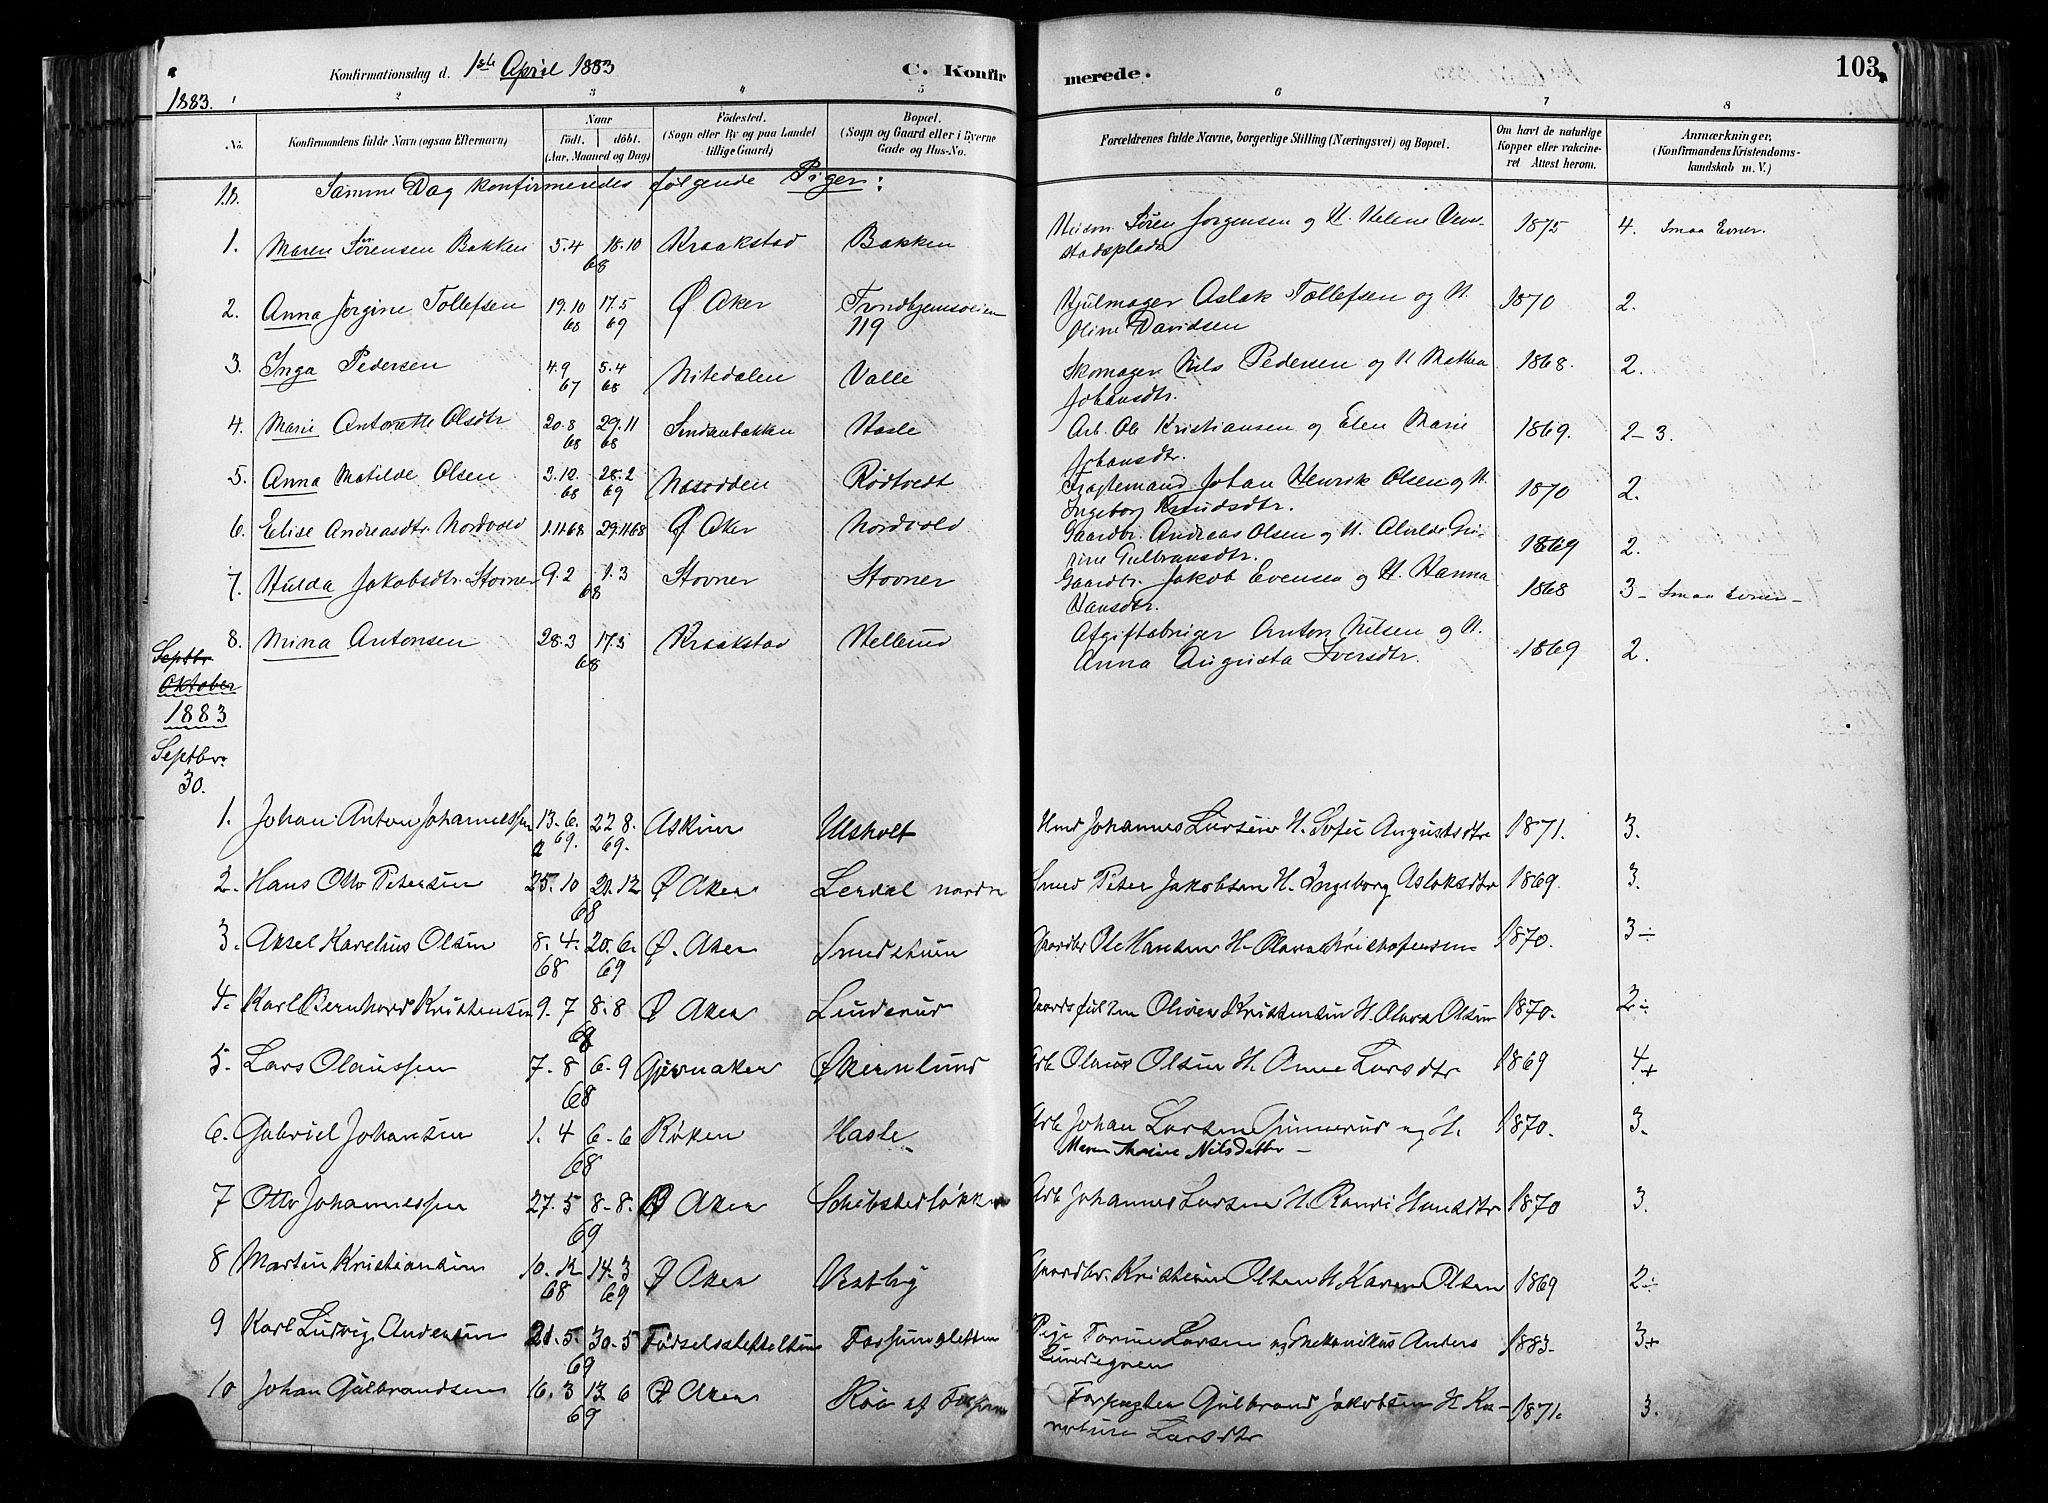 Konfirmationsdag d. 1ste April 1883 C. Konfirmerede. 103
1883.
1 2 3 4 5 6 7 8
No. Konfirmandens fulde Navn (ogsaa Efternavn) Naar født. døbt. (Aar, Maaned og Dag) Fødested. (Sogn eller By og paa Landet tillige Gaard) Bopæl. (Sogn og Gaard eller i Byerne Gade og Hus-No. Forældrenes fulde Navne, borgerlige Stilling (Næringsvei) og Bopæl. Om havt de naturlige Kopper eller vakcineret Attest herom. Anmærkninger, (Konfirmandens Kristendomskundskab m. V.)
Samme Dag konfirmeredes følgende Piger:
1. Maren Sørensen Bakken 5.4 18.10 68 Kraakstad Bakken Søren Jørgensen og H. Helene 1875 4. Smaa Evner.
2. Anna Jørgine Tollefsen 19.10 68 17.5 69 Ø Aker Trondhjemsveien 119 Hjulmager Aslak Tollefsen og H. Oline Davidsen 1870 2.
3. Inga Pedersen 4.9 67 5.4 68 Nitedalen Valle Skomager Nils Pedersen og H Mathea Johansdtr. 1868. 2.
4. Marie Antonette Olsdtr 20.8 68 29.11 68 Hasle Arb. Ole Kristiansen og Elen Marie Johansdtr. 1869. 2-3.
5. Anna Matilde Olsen 3.12. 68 28.2 69 Nesodden Rødtvedt Johan Henrik Olsen og H. Ingeborg Knudsdtr. 1870 2.
6. Elise Andreasdtr Nordvold 1.11.68 29.11.68 Ø Aker Nordvold Gaardbr. Andreas Olsen og H. Gulbransdtr. 1869 2.
7. Hulda Jakobsdtr. Stovner 9.2 1.3 68 Stovner Stovner Gaardbr. Jakob Evensen og H. Hanna Hansdtr. 1868 3 - Smaa Evner -
8. Mina Antonsen 28.3 17.5 68 Kraakstad Hellerud Afgiftsbruger Anton Nilsen og H. Anna Augusta Iversdtr. 1869 2.
Septbr
Oktober
1883
Septbr.
30.
1. Johan Anton Johannessen 13.6. 69. 22 8. 69. Askim Ulsholt Johannes Larsen H. Sofie Augustsdtr 1871. 3.
2. Hans Otto Petersen 25.10 21.12 68 Ø Aker Lerdal nordre Smed Peter Jakobsen H. Ingeborg Aslaksdtr 1869. 3.
3. Aksel Karelius Olsen 8.4. 68 20.6. 69 Ø. Aker Smedstuen Gaardbr Ole Hansen H. Olava Kristofersen 1870. 3÷
4. Karl Bernhard Kristensen 9.7 8.8 68 Ø Aker Linderud Oliver Kristensen H. Olava Olsen 1870.
5. Lars Olaussen 7.8 6.9 68 Gjermaker Økernlund Arb Olaus Olsen H. Anne Larsdtr 1869 4+
6. Gabriel Johansen 1.4 6-6 68 Røken Hasle Arb Johan Larsen Gunnerud og H. Maren Nilsdatter - 1870. 3.
7 Otto Johannessen 27.5 8-8. 69 Ø Aker Schibstedløkken Arb Johannes Larsen H. Randi Hansdtr 1870 3.
8 Martin Kristiansen 10.12 68 14.3 69 Ø Aker Vestby Gaardbr. Kristian Olsen H. Karen Olsen 1869 2÷
9 Karl Ludvig Andersen 21.5. 30.5 69 Fødselsstiftelsen Pige Larsen og Mekanikus Anders 1883. 3+
10 Johan Gulbrandsen 16.3 13 6 69 Ø Aker Gulbrand Jakobsen H Larsdtr 1871. 3.